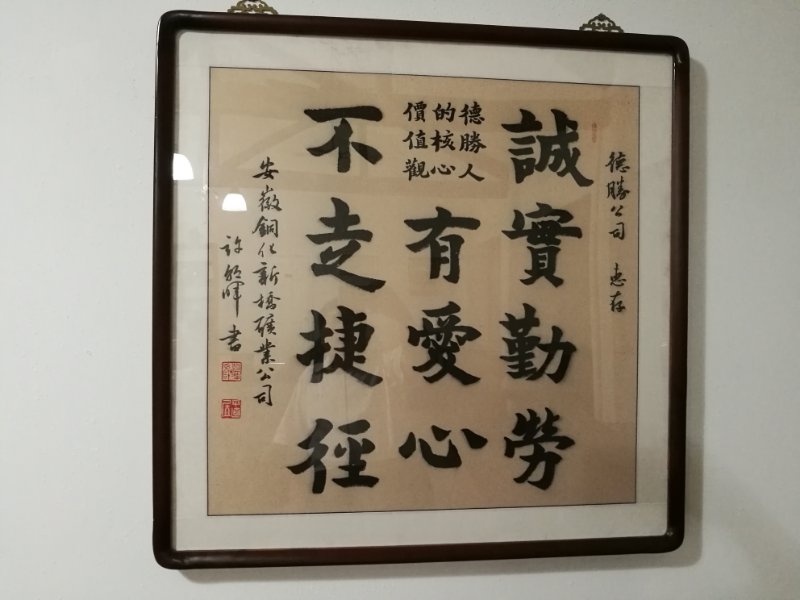 德勝公司 惠存
誠實勤勞
德勝人
的核心
價值觀
有愛心
不走捷徑
安徽銅化新橋礦業公司
書